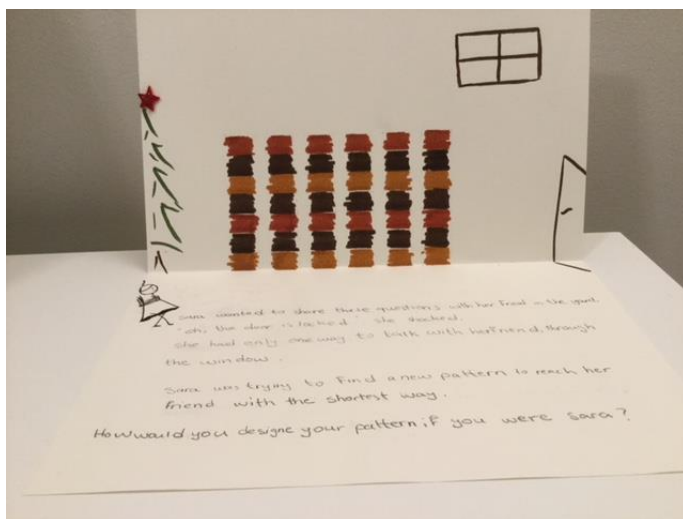 Sara wanted to share these questions with her friend in the yard.
"oh, the door is locked" she shocked.
she had only one way to talk with her friend, through
the window.
Sara was trying to find a new pattern to reach her
friend with the shortest way.
How would you designe your pattern, if you were sara?